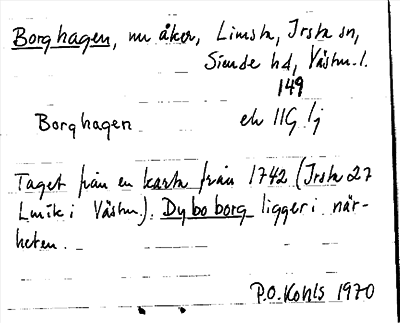 Borghagen, nu åker, Limsta, Irsta sn,
Siende hd, Västm. l.
149
Borghagen ek 11G 1j
Taget från en karta från 1742 (Irsta 27
Lmfk i Västm.). Dyboborg ligger i när-
heten.
P.O. Kohls 1970